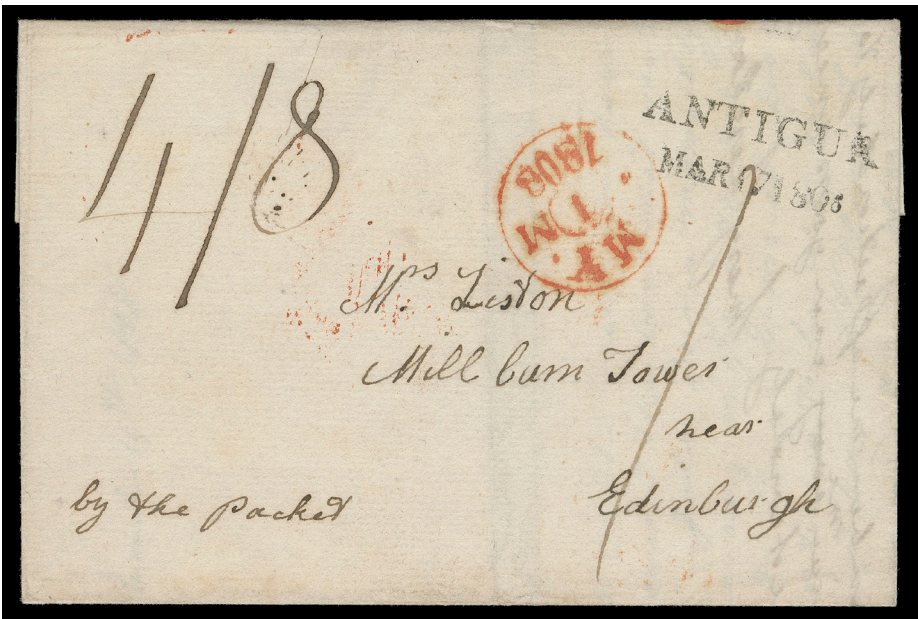 4/8
ANTIGUA
MAR 17 1808
MY
1
1808
Mrs Liston
Millburn Tower
near
Edinburgh
by the Packet